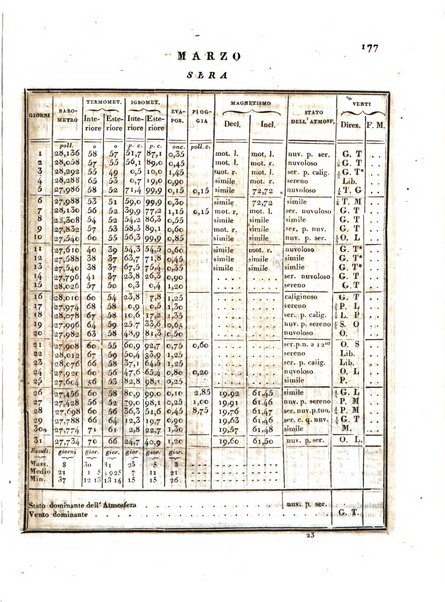 177
MARZO
SERA
GIORNI BAROMETRO TERMOMET. IGROMET. EVAPOR. PIOGGIA MAGNETISMO STATO DELL'ATMOSF. VENTI
Interiore Esteriore Interiore Esteriore Decl. Incl. Direz. F. M.
poll. o o p. c. p. c. onc. poll. c.
1 28,136 58 57 51,7 87,1 0,35 mot. l. mot. l. nuv. p. ser. G. T
2 28,058 57 55 56,1 89,0 0,40 mot. l. mot. l. nuvoloso G. T.
3 28,292 55 49 0,5 1,6 0,20 mot. r. mot. l. ser. p. calig. G. T*
4 28,288 55 53 0,5 1,0 0,90 simile mot. l. sereno Lib.
5 27,986 58 52 71,4 99,9 0,15 0,15 simile 72,72 nuvoloso T. G
6 27,988 53 51 59,0 99,9 0,30 simile 72,72 simile T. M
7 28,130 56 52 39,9 77,2 1,15 mot. r. mot. l. nuvoloso G. T.
8 28,308 54 52 54,2 86,3 0,55 simile simile simile G. T
9 28,010 58 55 58,3 89,1 0,60 simile simile nuv. p. ser. G. T*
10 27,540 60 55 56,3 99,9 0,85 simile simile nuvoloso O. L
11 27,610 40 39 54,3 54,5 0,60 simile simile simile G. T*
12 27,588 43 38 63,7 71,8 0,45 simile simile simile G. T*
13 27,540 38 37 67,5 75,4 0,35 simile simile simile G. T*
14 27,796 41 37 23,8 26,3 0,90 nuvoloso G. T
15 28,026 57 50 0,3 0,4 1,20 sereno G. T.
16 28,010 60 54 23,8 7,8 1,25 caliginoso G. T
17 27,974 68 58 0,9 0,5 1,50 sereno P. M
18 28,078 67 56 10,6 17,2 1,35 nuv. p. ser. G. T.
19 27,996 64 59 25,7 33,6 0,60 nuv. p. sereno S. O
20 27,982 63 58 48,9 81,3 0,50 nuvoloso O.
21 27,908 59 54 60,9 92,7 0,75 0,60 ser.p.n. a 12ore O. S
22 28,012 67 59 20,4 53,9 1,35 sereno Lib.
23 28,076 66 58 23,4 54,0 1,45 ser. p. calig. Lib.
24 27,920 66 56 47,6 65,4 0,80 0,20 nuvoloso T. G.
25 27,604 60 54 82,8 98,1 0,25 simile P.
26 27,456 58 60 80,9 99,0 0,10 2,85 19,92 61,45 simile G. L
27 27,428 56 55 80,2 98,1 0,10 1,00 19,91 61,45 nuvoloso P. M
28 27,698 60 56 36,3 51,6 0,45 8,75 19,76 61,47 ser. nuv.p.tuo. P. M
29 27,788 66 64 12,3 19,7 0,90 19,61 61,46 ser. c. q. nuv. G. T
30 27,774 71 61 2,8 22,7 1,30 19,57 61,48 simile M.
31 27,734 70 66 24,7 40,9 1,20 19,60 61,50 nuv. p. ser. O. L.
Result. giorni gior. gior. gior. gior. gior.
Mass. 8 30 31 25 5 8
Medio 21 1 5 4925 7 11 21
Min. 37 12 13 13 14 15 15 26
Stato dominante dell' Atmosfera nuv. p. ser.
Vento dominante G. T.
23